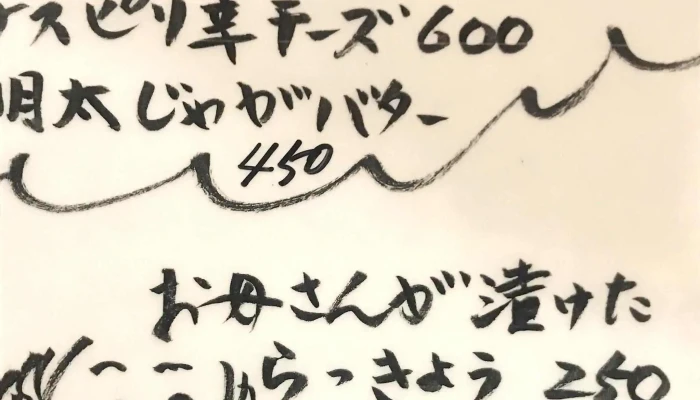 ピリ辛チーズ 600
明太じゃがバター
450
お母さんが漬けた
らっきょう 250